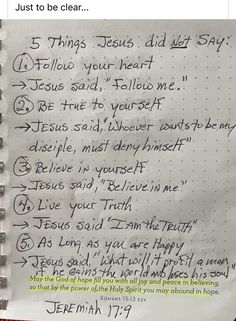 Just to be clear...
5 Things Jesus did Not Say:
1. Follow your heart
→ Jesus said, "Follow me."
2. BE true to yourself
→ Jesus said, "Whoever wants to be my
disciple, must deny himself"
3. Believe in yourself
→ Jesus said, "Believe in me"
4. Live Your Truth
→ Jesus said "I am the Truth"
5. As Long As you are Happy
→ Jesus said "What will it profit a man
if he gains the world and loses his soul"
May the God of hope fill you with all joy and peace in believing,
so that by the power of the Holy Spirit you may abound in hope.
ROMANS 15:13 ESV
JEREMIAH 17:9